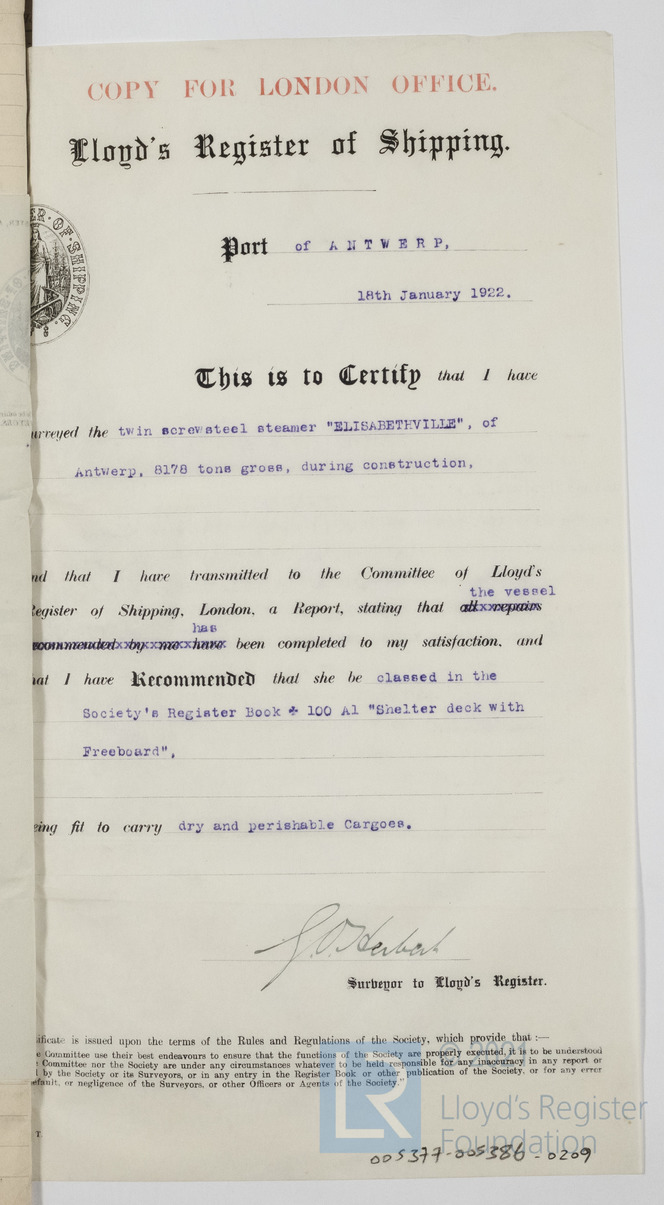 COPY FOR LONDON OFFICE.
Lloyd's Register of Shipping.
ER·OF·SHIPPING.
Port of ANTWERP,
18th January 1922.
This is to Certify that I have
urveyed the twin screwsteel steamer "ELISABETHVILLE", of
Antwerp, 8178 tons gross, during construction,
nd that I have transmitted to the Committee of Lloyd's
the vessel
Register of Shipping, London, a Report, stating that all repairs
has
ecommended by me have been completed to my satisfaction, and
hat I have Recommended that she be classed in the
Society's Register Book ✠ 100 A1 "Shelter deck with
Freeboard",
eing fit to carry dry and perishable Cargoes.
G.O. Herbert
Surveyor to Lloyd's Register.
ificate is issued upon the terms of the Rules and Regulations of the Society, which provide that :—
e Committee use their best endeavours to ensure that the functions of the Society are properly executed, it is to be understood
Committee nor the Society are under any circumstances whatever to be held responsible for any inaccuracy in any report or
l by the Society or its Surveyors, or in any entry in the Register Book or other publication of the Society, or for any error
efault, or negligence of the Surveyors, or other Officers or Agents of the Society."
© 2021
LR
Lloyd's Register
Foundation
T.
005377-005386-0209